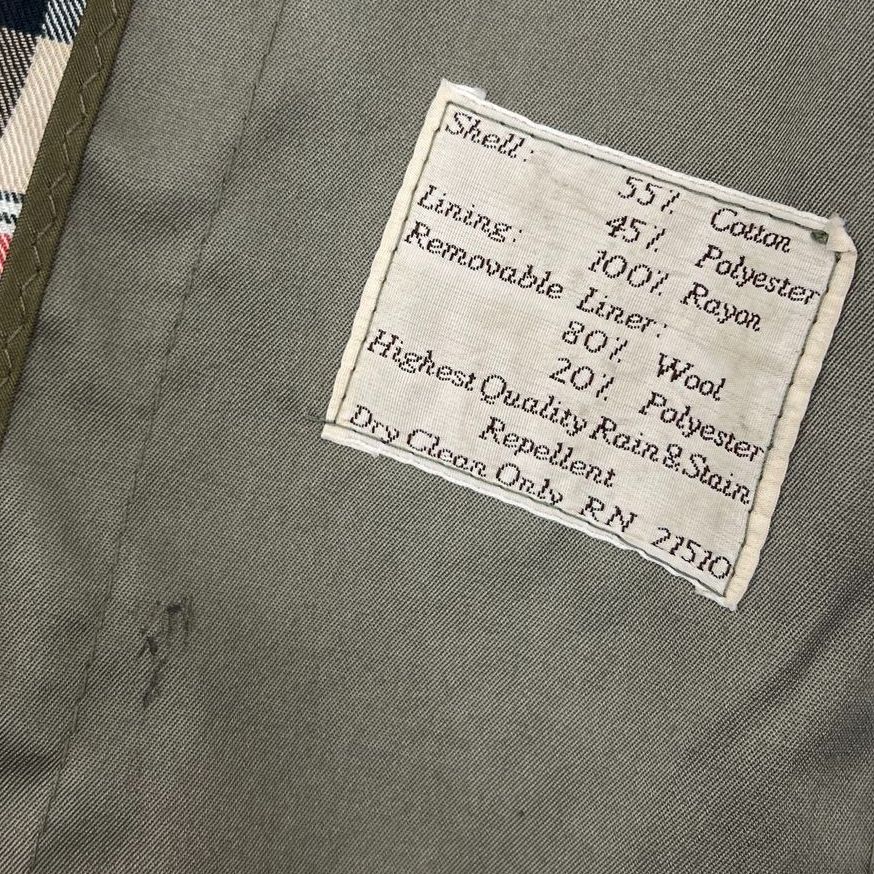 Shell:
55% Cotton
45% Polyester
Lining: 100% Rayon
Removable Liner:
80% Wool
20% Polyester
Highest Quality Rain & Stain
Repellent
Dry Clean Only RN 21510